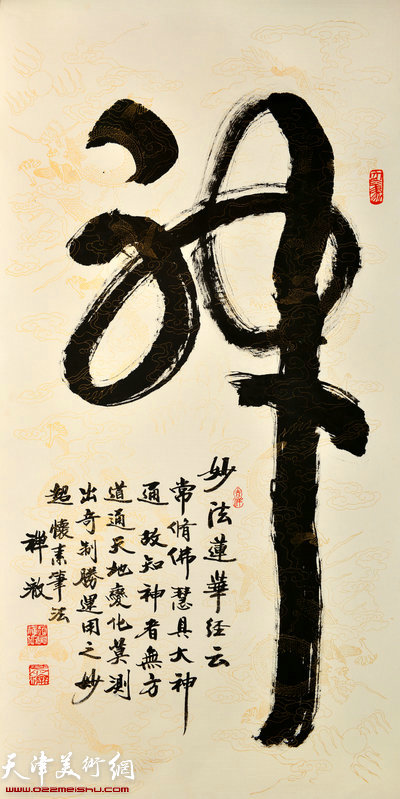 妙法蓮華経云
常脩佛慧具大神
通故知神者無方
道通天地變化莫測
出奇制勝運用之妙
懷素筆法
天津美術網
www.022meishu.com